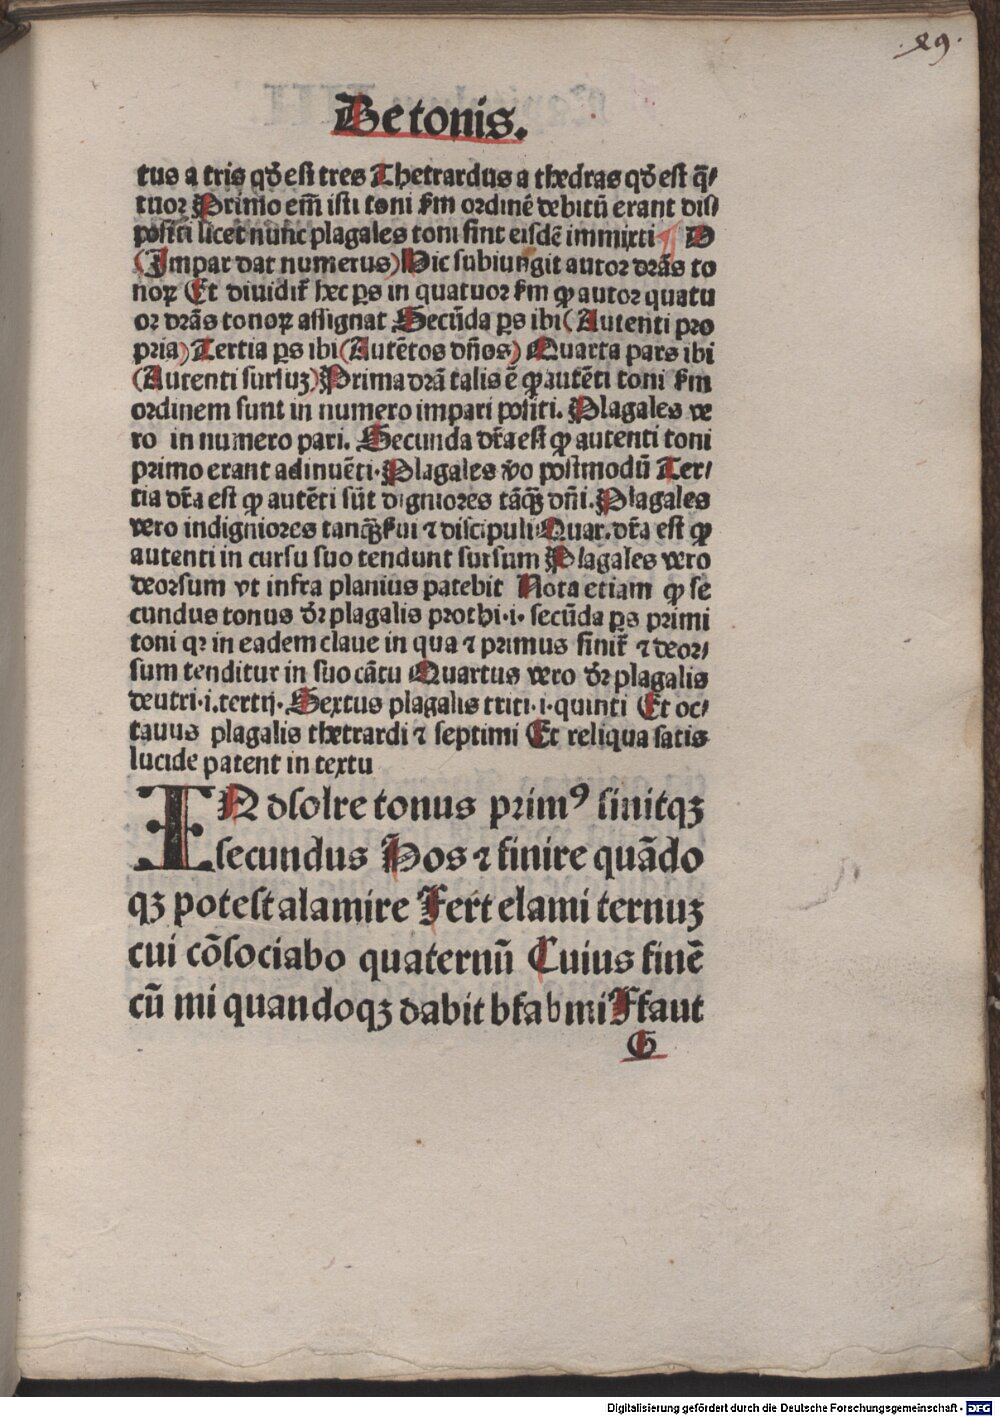 89.
De tonis.
tus a tris qd̄ est tres Thetrardus a thedras qd̄ est q̄⸗
tuor Primo em̄ isti toni s̄m ordinē debitū erant dis⸗
positi licet nunc plagales toni sint eisdē immixti ¶ D
(Impar dat numerus) Hic subiungit autor dr̄as to
noꝝ Et diuidit̄ hec ps̄ in quatuor s̄m ꝙ autor quatu
or dr̄as tonoꝝ assignat Secūda ps̄ ibi (Autenti pro
pria) Tertia ps̄ ibi (Autētos dn̄os) Quarta pars ibi
(Autenti sursuꝫ) Prima dr̄a talis ē ꝙ autēti toni s̄m
ordinem sunt in numero impari positi. Plagales ve
ro in numero pari. Secunda dr̄a est ꝙ autenti toni
primo erant adinuēti. Plagales v̄o postmodū Ter⸗
tia dr̄a est ꝙ autēti sūt digniores tāqꝫ̄ dn̄i. Plagales
vero indigniores tanqꝫ̄ s̄ui ⁊ discipuli Quar. dr̄a est ꝙ
autenti in cursu suo tendunt sursum Plagales vero
deorsum vt infra planius patebit Nota etiam ꝙ se
cundus tonus dr̄ plagalis prothi .i. secūda ps̄ primi
toni qꝛ in eadem claue in qua ⁊ primus finit̄ ⁊ deor⸗
sum tenditur in suo cātu Quartus vero dr̄ plagalis
deutri .i. tertij. Sextus plagalis triti .i. quinti Et oc⸗
tauus plagalis thetrardi ⁊ septimi Et reliqua satis
lucide patent in textu
IN dsolre tonus primꝰ finitqꝫ
secundus Hos ⁊ finire quādo
qꝫ potest alamire Fert elami ternuꝫ
cui cōsociabo quaternū Cuius finē
cū mi quandoqꝫ dabit bfabmi Ffaut
G
Digitalisierung gefördert durch die Deutsche Forschungsgemeinschaft - DFG